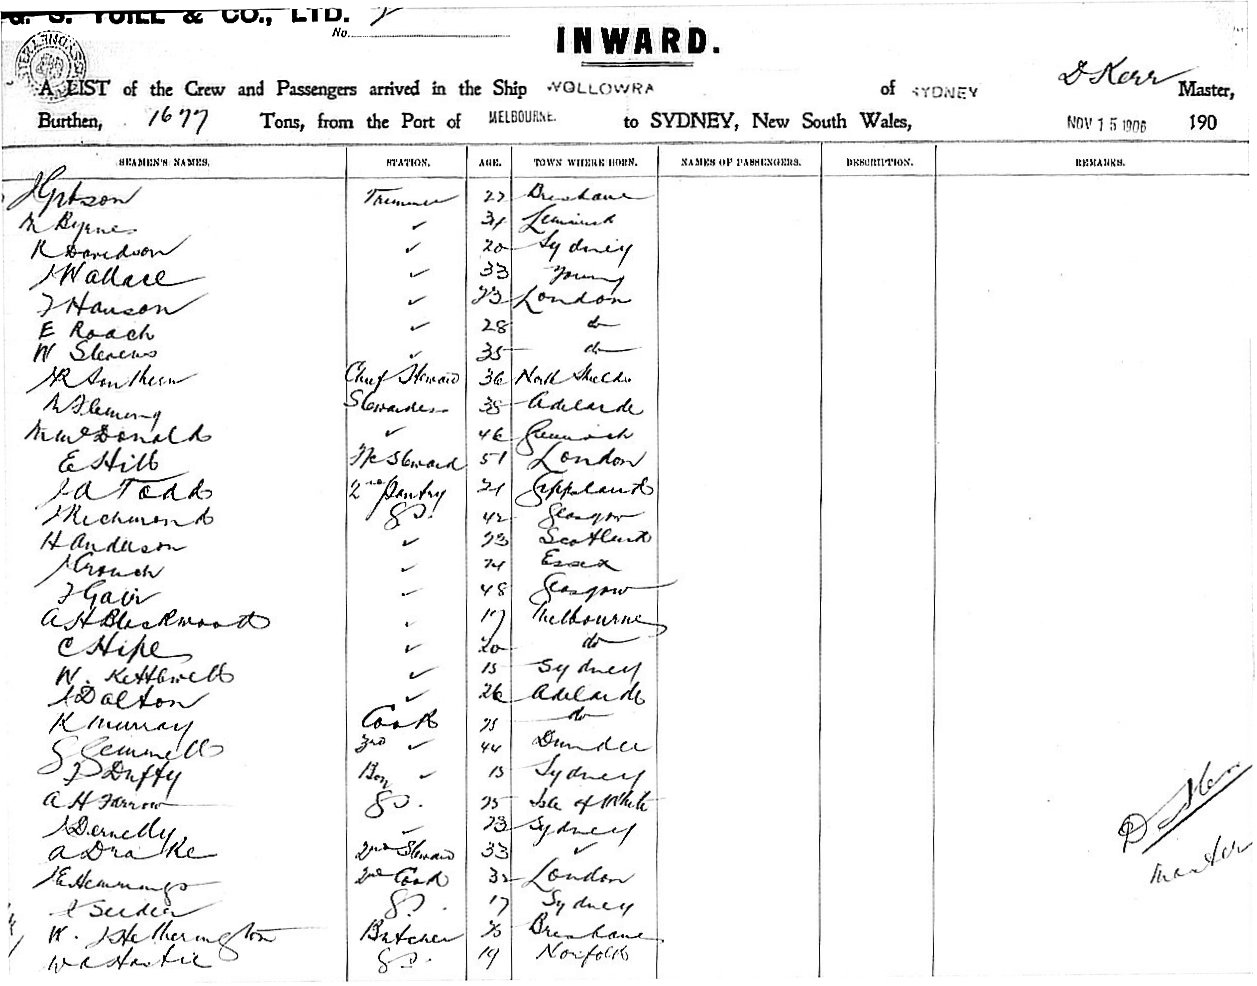 G. S. YUILL & CO., LTD.
No.
INWARD.
A LIST of the Crew and Passengers arrived in the Ship WOLLOWRA of SYDNEY D Kerr Master,
Burthen, 1677 Tons, from the Port of MELBOURNE. to SYDNEY, New South Wales, NOV 15 1906 190
SEAMEN'S NAMES. STATION. AGE. TOWN WHERE BORN. NAMES OF PASSENGERS. DESCRIPTION. REMARKS.
J Gibson Trimmer 27 Brisbane
M Byrnes ✓ 34 Limerick
R Davidson ✓ 20 Sydney
J Wallace ✓ 33 Young
J Hanson ✓ 23 London
E Roach ✓ 28 do
W Stevens ✓ 35 do
Chief Steward 36 North Shields
M Fleming Stewardess 38 Adelaide
M McDonald ✓ 46 Greenwich
E Hill Steward 51 London
J A Todd 2nd Pantry 21 Gippsland
J Richmond GS. 42 Glasgow
H Anderson ✓ 23 Scotland
J Crouch ✓ 24 Essex
J Gair ✓ 48 Glasgow
A H Blackwood ✓ 17 Melbourne
C Hipe ✓ 20 do
W. Kettlewell ✓ 18 Sydney
J Dalton ✓ 26 Adelaide
K Murray Cook 25 do
G Gemmell 3rd ✓ 44 Dundee
J Duffy Boy ✓ 18 Sydney
A H Farrow GS. 25 Isle of White
J Dennelly ✓ 23 Sydney
A Drake 2nd Steward 33 ✓
J E Hemmings 2nd Cook 32 London
GS. 17 Sydney
W. J Hetherington Butcher 26 Brisbane
W A Hastie GS. 19 Norfolk
D Kerr
Master